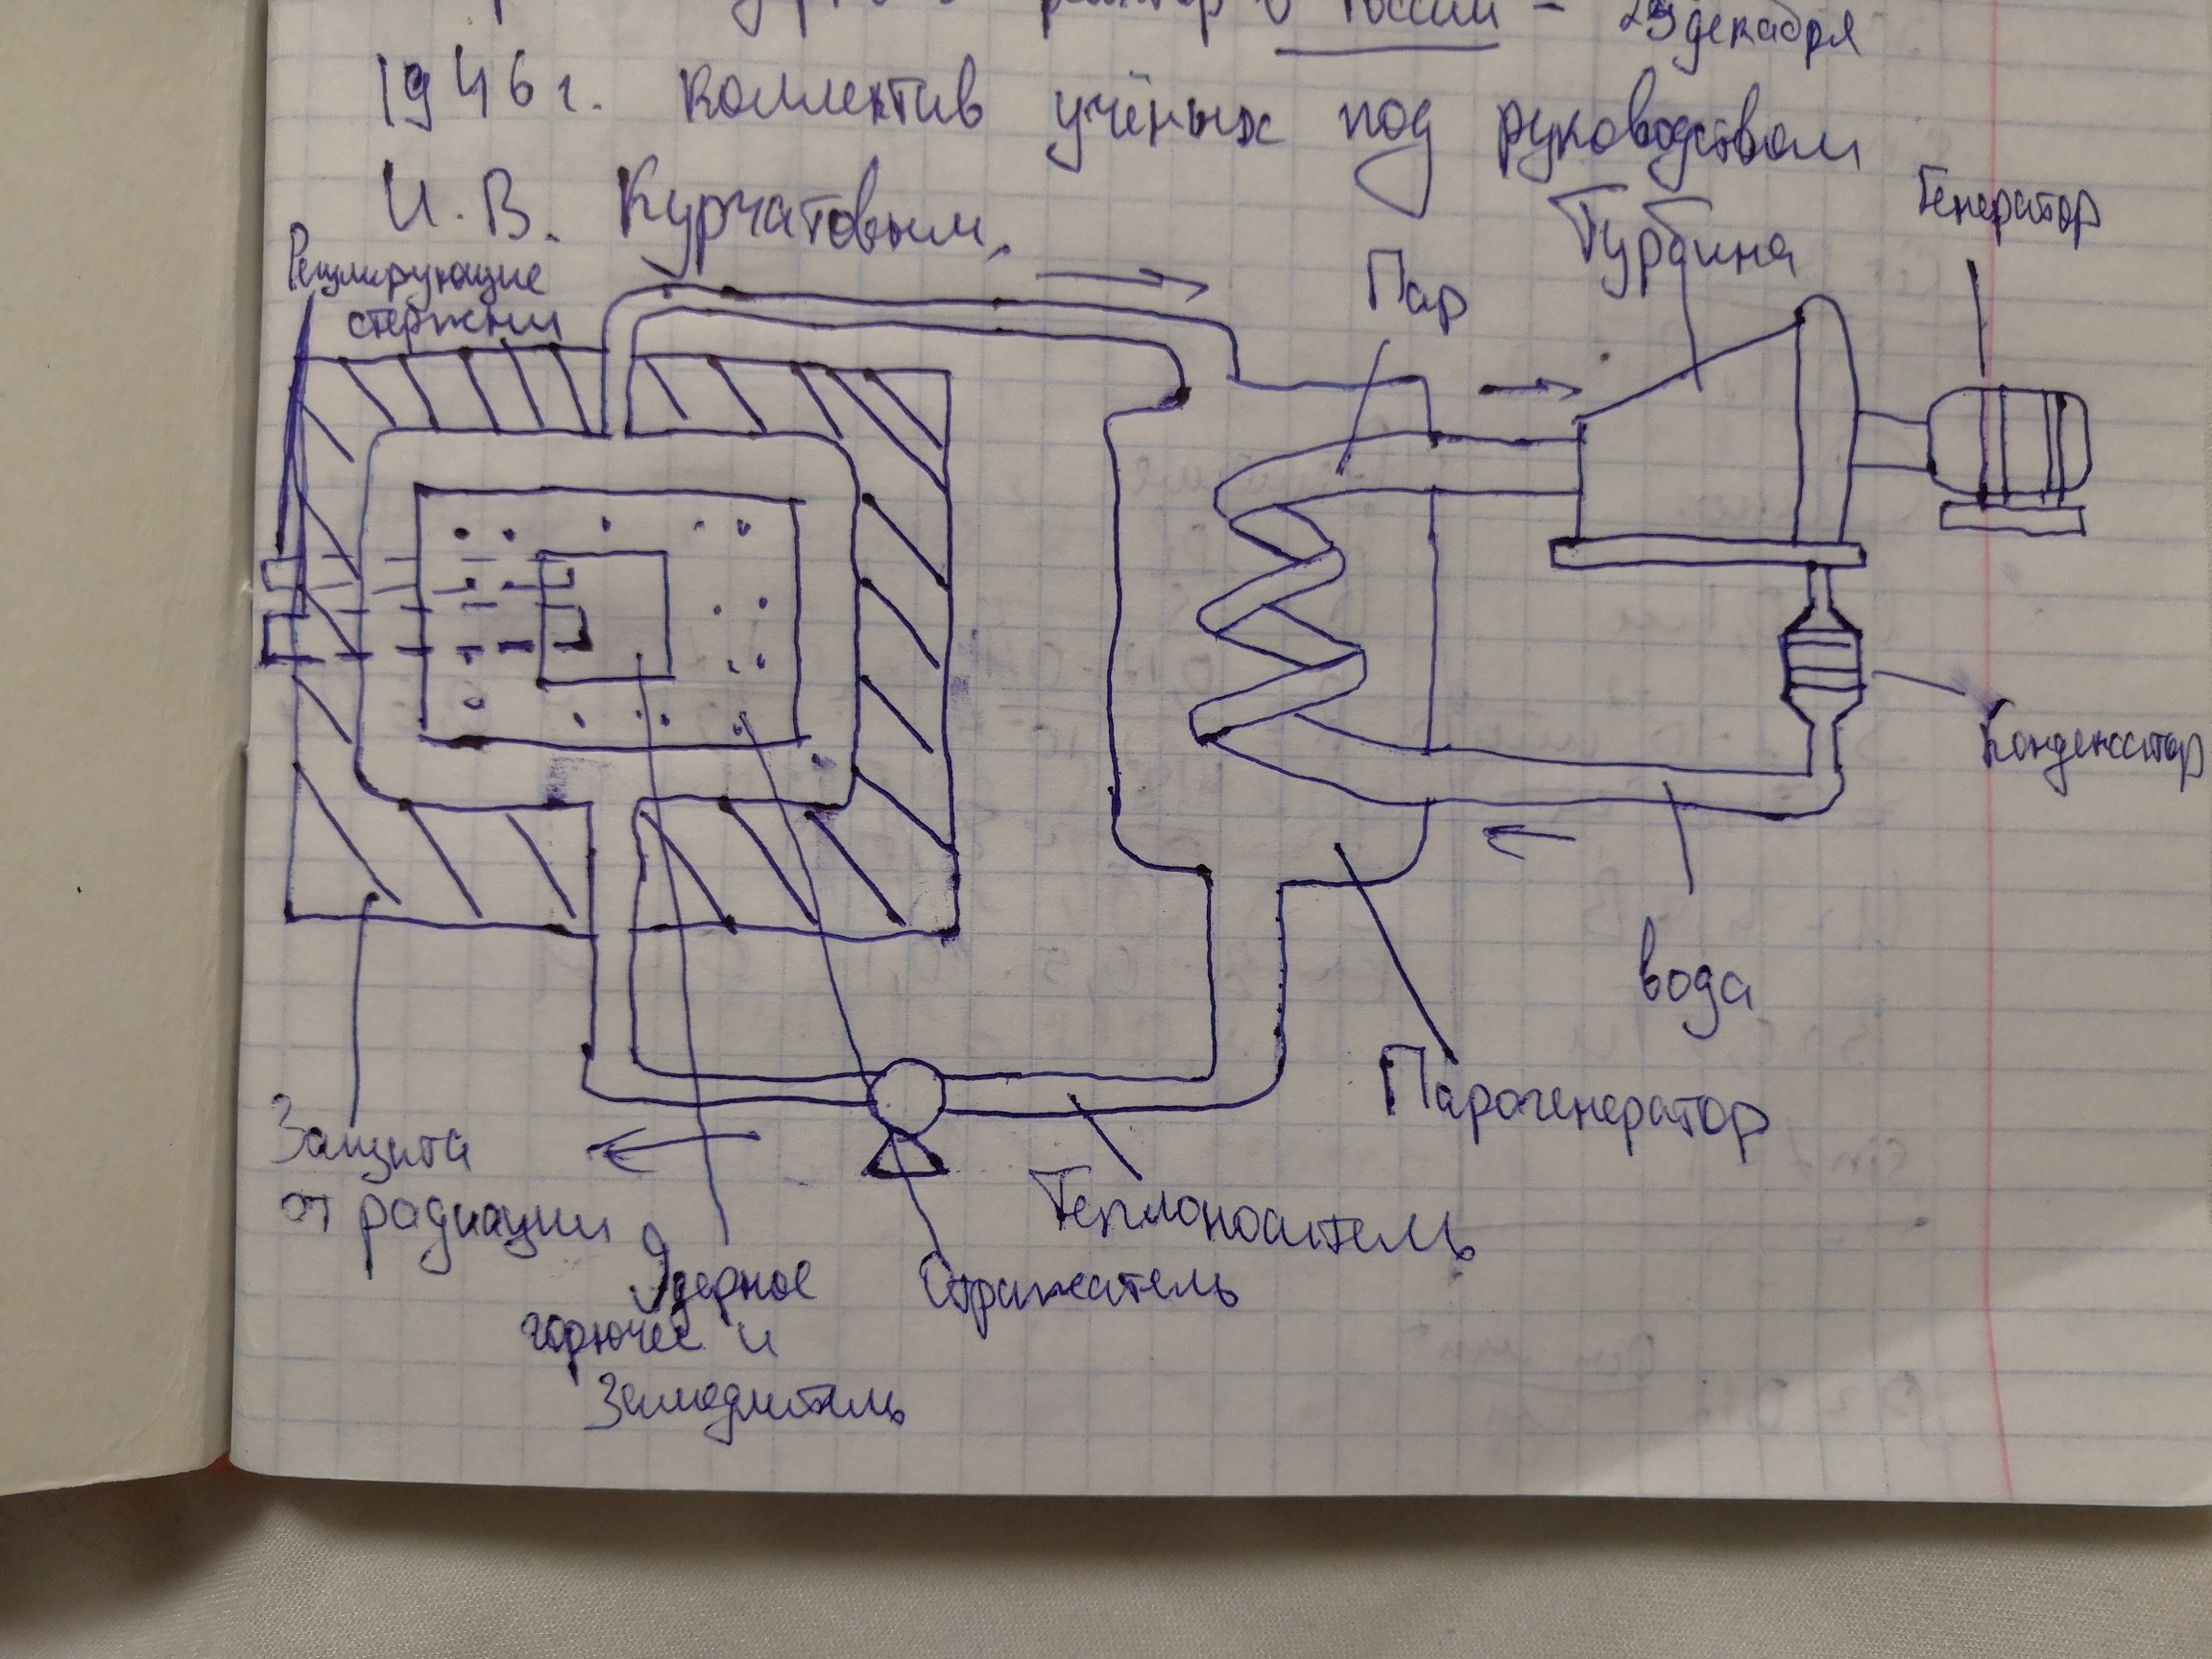 реактор в России - 25 декабря
1946 г. коллектив учёных под руководством
И. В. Курчатовым.
Генератор
Турбина
Пар
Регулирующие
стержни
Конденсатор
вода
Парогенератор
Защита
от радиации
Теплоноситель
Отражатель
Ядерное
горючее и
Замедлитель